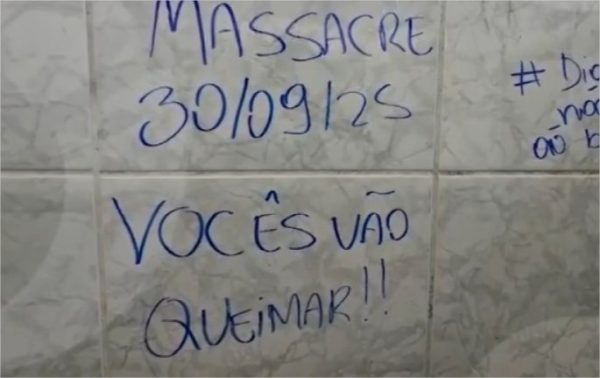 MASSACRE
30/09/25
VOCÊS VÃO
QUEIMAR!!
#
ao